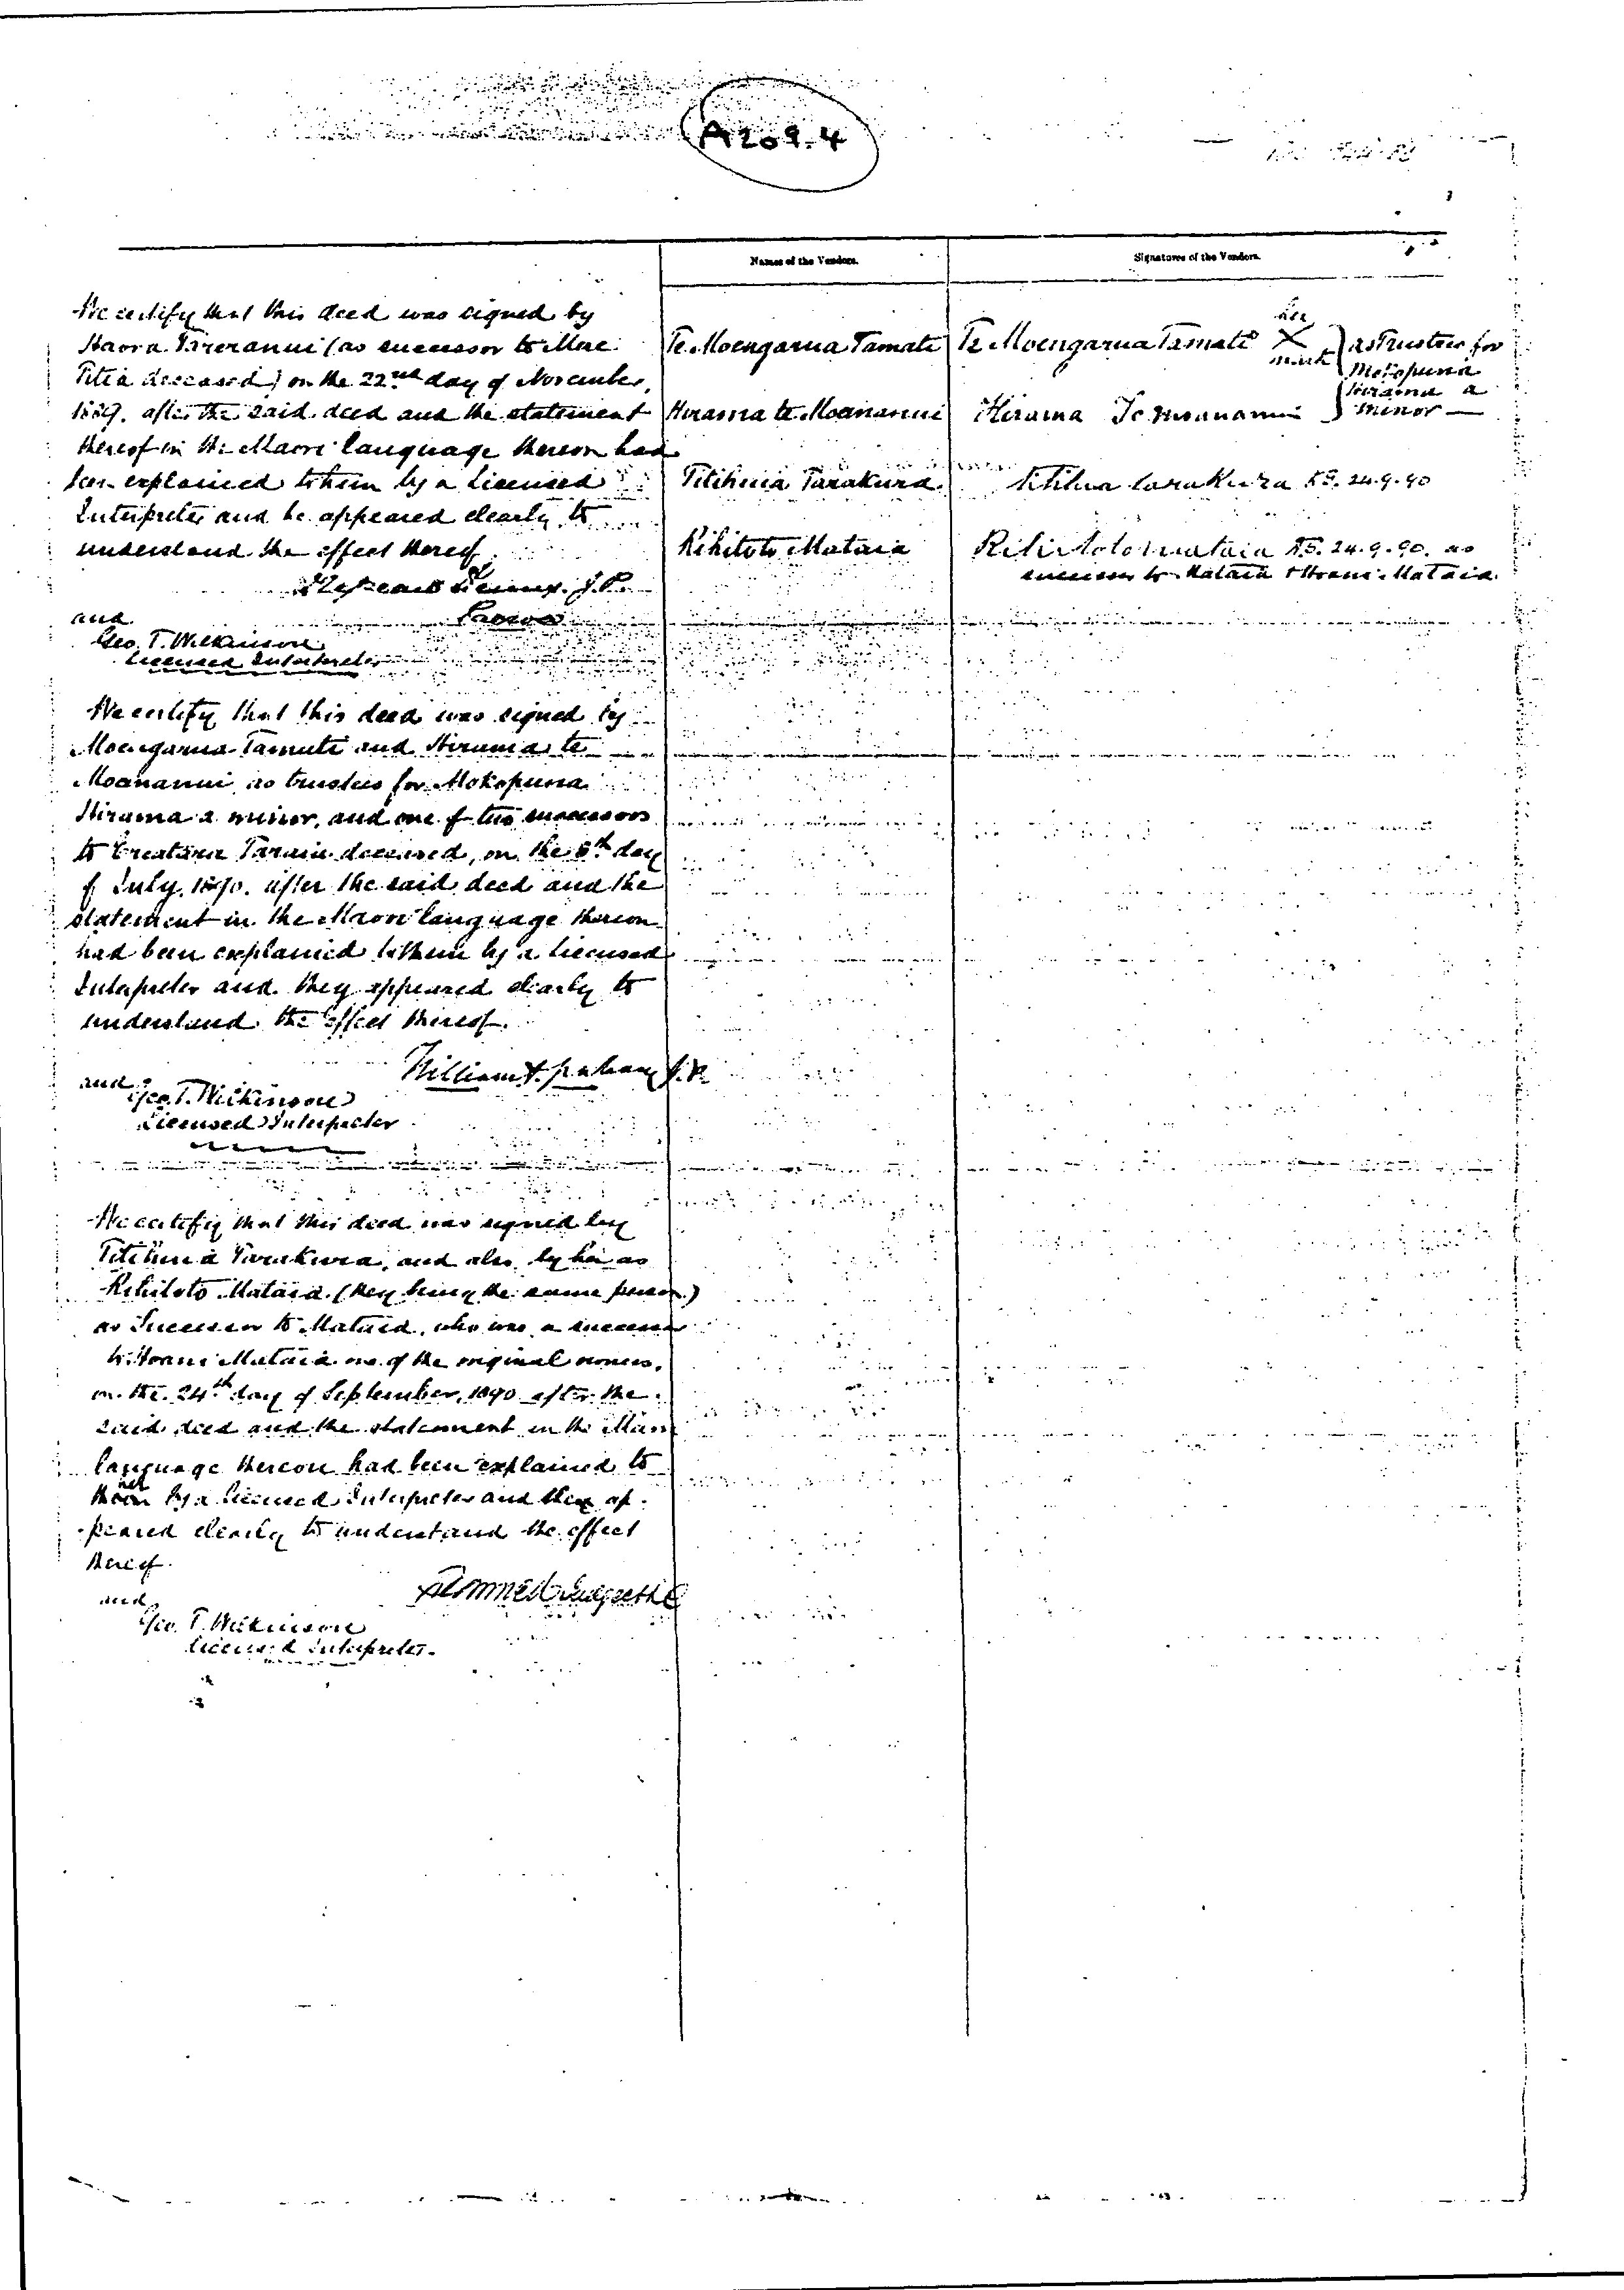 A209.4
Names of the Vendors.
Signatures of the Vendors.
We certify that this deed was signed by
Haora Tareranui (as successor to Mae
Titia deceased) on the 22nd day of November,
1889. after the said deed and the statement
thereof in the Maori language thereon had
been explained to him by a Licensed
Interpreter and he appeared clearly to
understand the effect thereof
J.P.
and
Geo. T. Wilkinson
Licensed Interpreter
Te Moengarua Tamati
Te Moengarua Tamati her X mark
as Trustees for
Mokopuna
Hirama a
minor
Hirama te Moananui
Hirama Te moananui
Titihuia Tarakura
Titihuia tarakura 24.9.90
Rihitoto Mataia
Rihitoto mataia 24.9.90. as
successor to Mataia Hoani Mataia
We certify that this deed was signed by
Moengarua Tamati and Hirama te
Moananui as trustees for Mokopuna
Hirama a minor, and one of two successors
to Tarain deceased, on the 8th day
of July, 1890. after the said deed and the
statement in the Maori language thereon
had been explained to them by a Licensed
Interpreter and they appeared clearly to
understand the effect thereof.
William J.P.
and
Geo. T. Wilkinson
Licensed Interpreter
We certify that this deed was signed by
Titihuia Tarakura, and also by her as
Rihitoto Mataia (they being the same person)
as Successor to Mataia, who was a successor
to Hoani Mataia one of the original owners,
on the 24th day of September, 1890 after the
said deed and the statement in the Maori
language thereon had been explained to
her by a licensed Interpreter and they ap-
peared clearly to understand the effect
thereof.
and
Geo. T. Wilkinson
Licensed Interpreter.